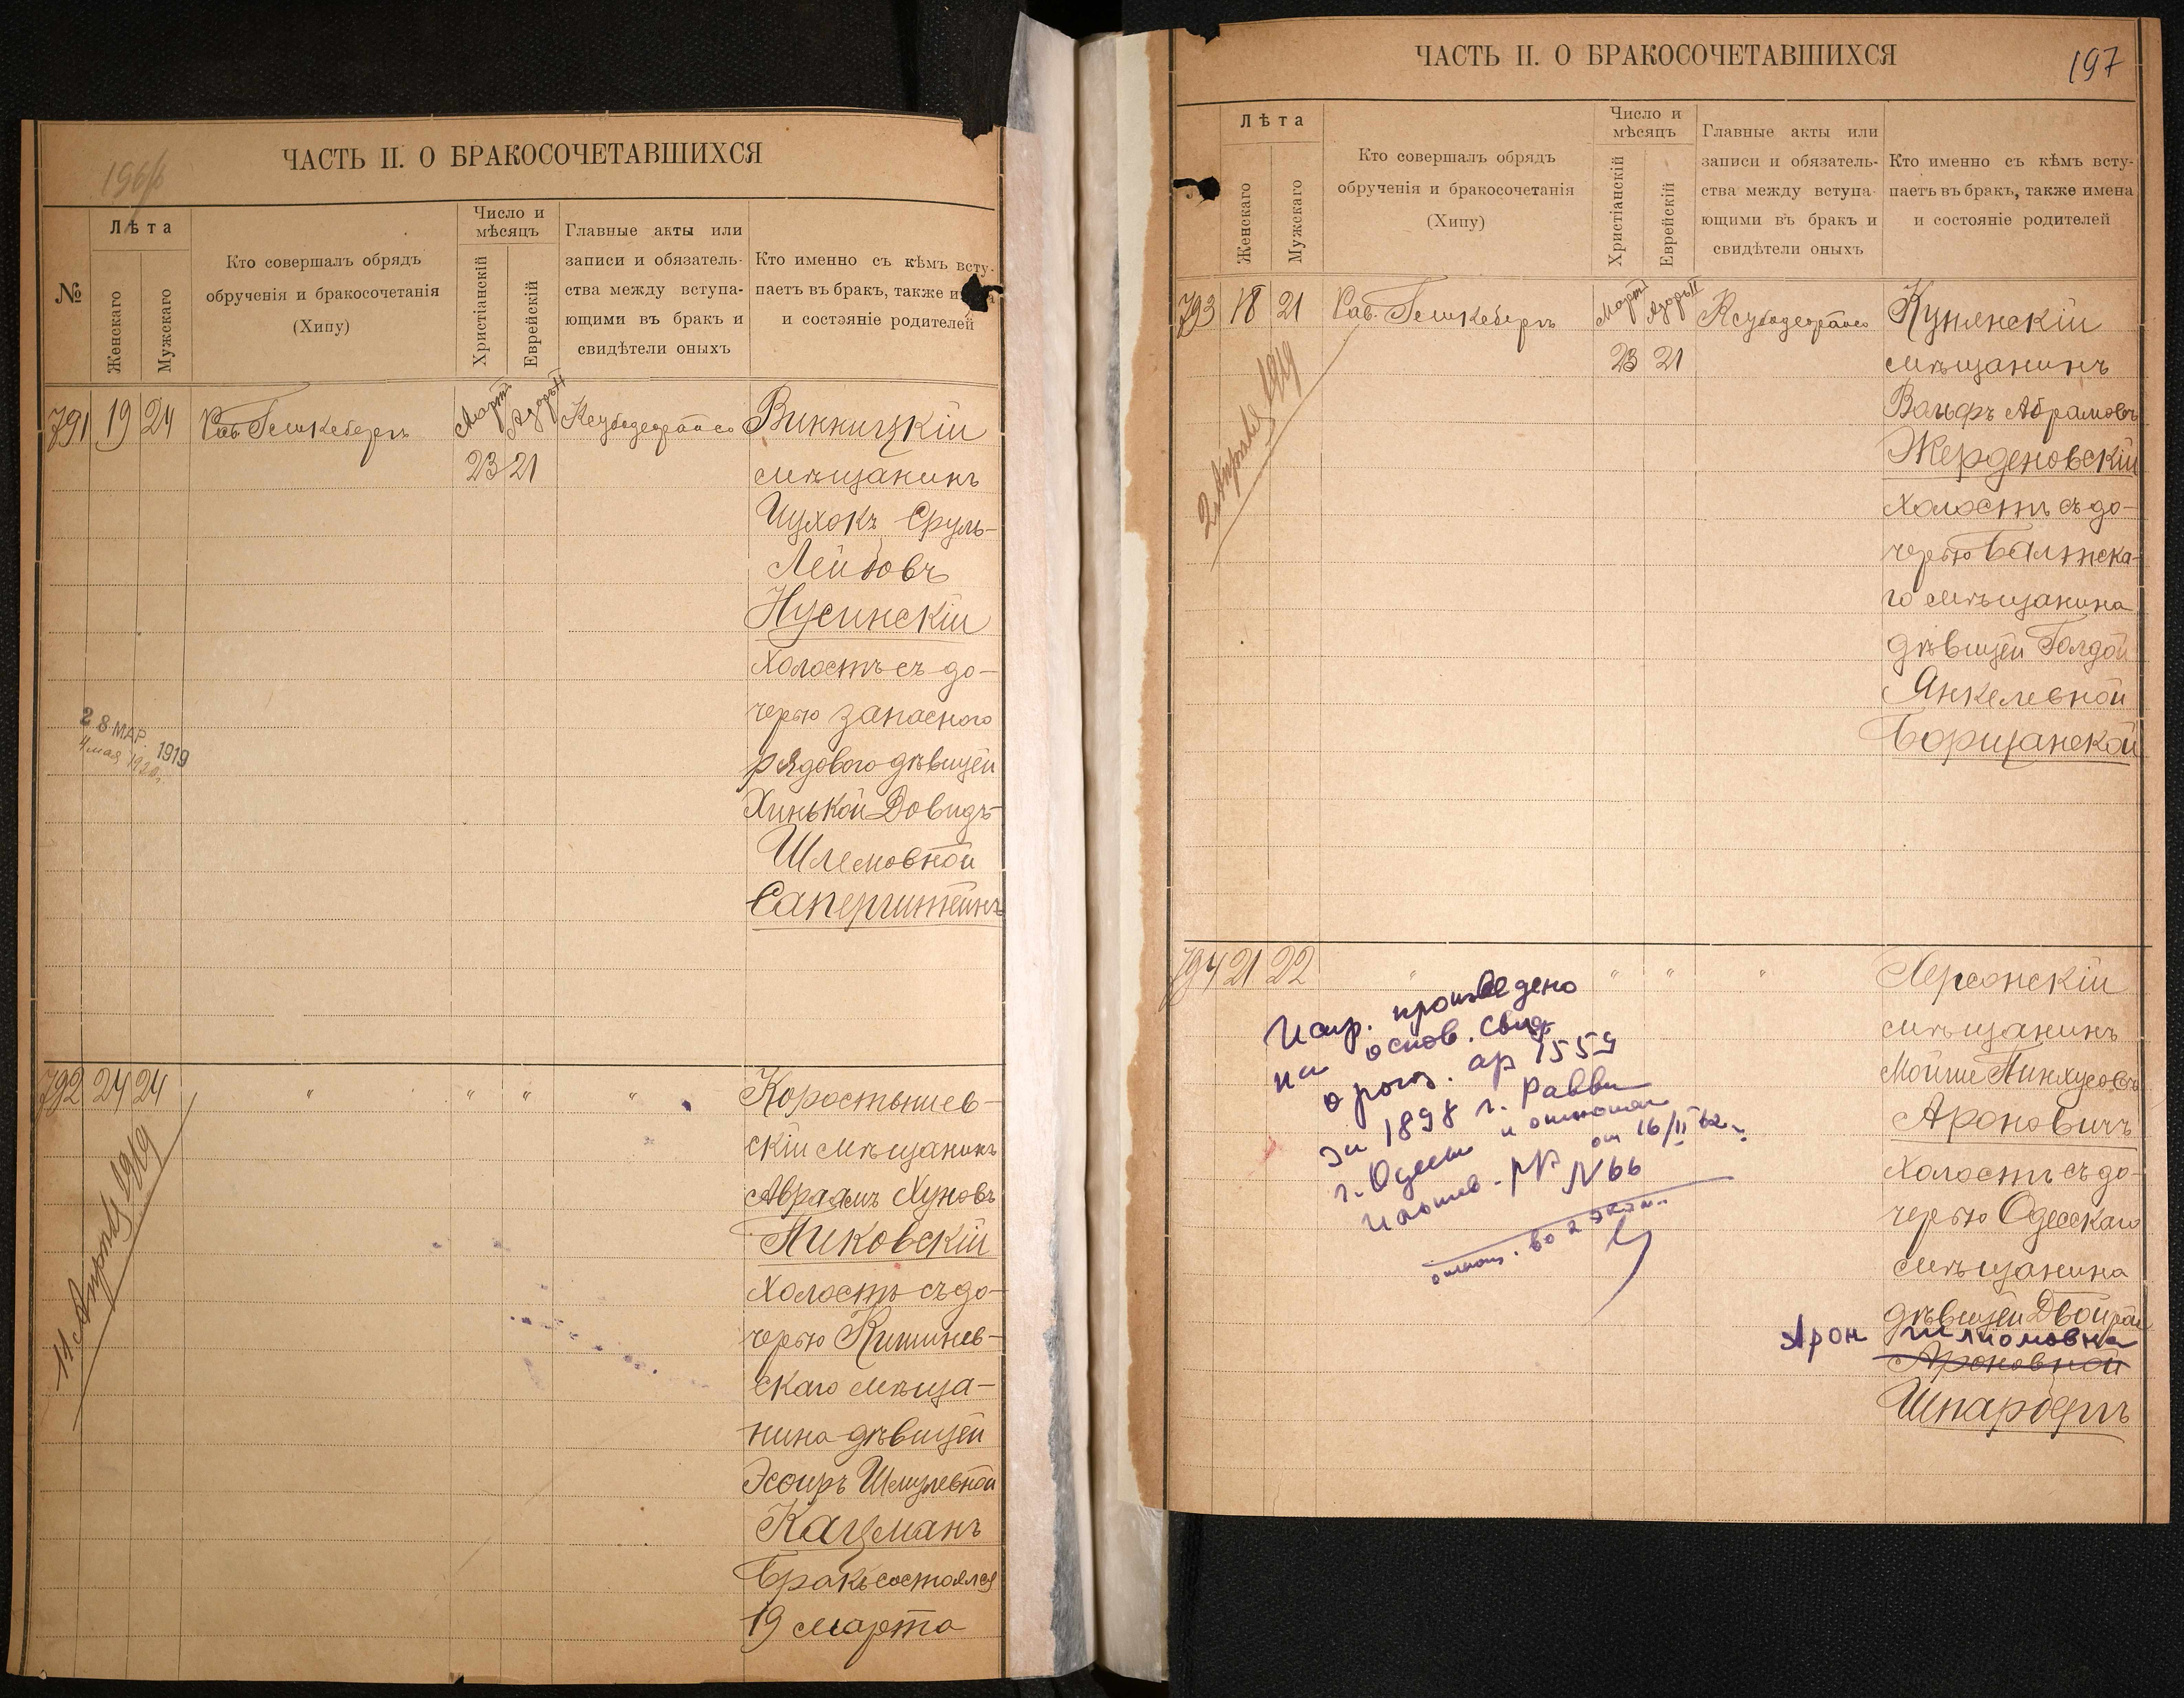 196
ЧАСТЬ II. О БРАКОСОЧЕТАВШИХСЯ
№
Лѣта
Женскаго
Мужскаго
Кто совершалъ обрядъ
обрученія и бракосочетанія
(Хипу)
Число и
мѣсяцъ
Христіанскій
Еврейскій
Главные акты или
записи и обязатель-
ства между вступа-
ющими въ бракъ и
свидѣтели оныхъ
Кто именно съ кѣмъ всту-
паетъ въ бракъ, также и
и состояніе родителей
791 19 24 Рав. Март Адоръ II Винницкій
23 21 мѣщанинъ
Ицхокъ Сруль-
Лейбовъ
Нусинскій
холостъ съ до-
черью запасного
рядового дѣвицей
Хинькой Довидъ-
Шлемовной
Саперштейнъ
28 МАР. 1919
4 мая 1920 г.
792 24 24 " " " " Коростышев-
скій мѣщанинъ
Авраамъ Хуновъ
Пиковскій
холостъ съ до-
черью Кишинев-
скаго мѣща-
нина дѣвицей
Эсѳирь Шмулевной
Кацманъ
Бракъ состоялся
19 марта
11 Апрѣль 1919
ЧАСТЬ II. О БРАКОСОЧЕТАВШИХСЯ
197
Лѣта
Женскаго
Мужскаго
Кто совершалъ обрядъ
обрученія и бракосочетанія
(Хипу)
Число и
мѣсяцъ
Христіанскій
Еврейскій
Главные акты или
записи и обязатель-
ства между вступа-
ющими въ бракъ и
свидѣтели оныхъ
Кто именно съ кѣмъ всту-
паетъ въ бракъ, также имена
и состояніе родителей
793 18 21 Рав. Март Адоръ II
23 21
мѣщанинъ
Вольфъ Абрамовъ
Жерденовскій
холостъ съ до-
черью Балтска-
го мѣщанина
дѣвицей Голдой
Янкелевной
Борщанской
2 Апрѣля 1919
794 21 22 " " " " Херсонскій
мѣщанинъ
Мойше Пинхусовъ
Ароновичъ
холостъ съ до-
черью Одесскаго
мѣщанина
дѣвицей Двойрой
Арон Шлиомовна
Ароновной
Шпарберъ
Испр. произведено
на основ. свид.
о рожд. ар 1559
за 1898 г. Равви
г. Одессы и отношен
от 16/II 62 г.
№ 66
отнош. во 2 экзм.